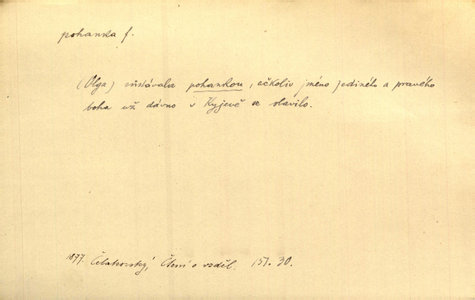 pohanka f.
(Olga) zůstávala pohankou, ačkoliv jméno jediného a pravého
boha už dávno v Kyjevě se slavilo.
1877 Čelakovský, Čtení o vzděl. 151. 30.